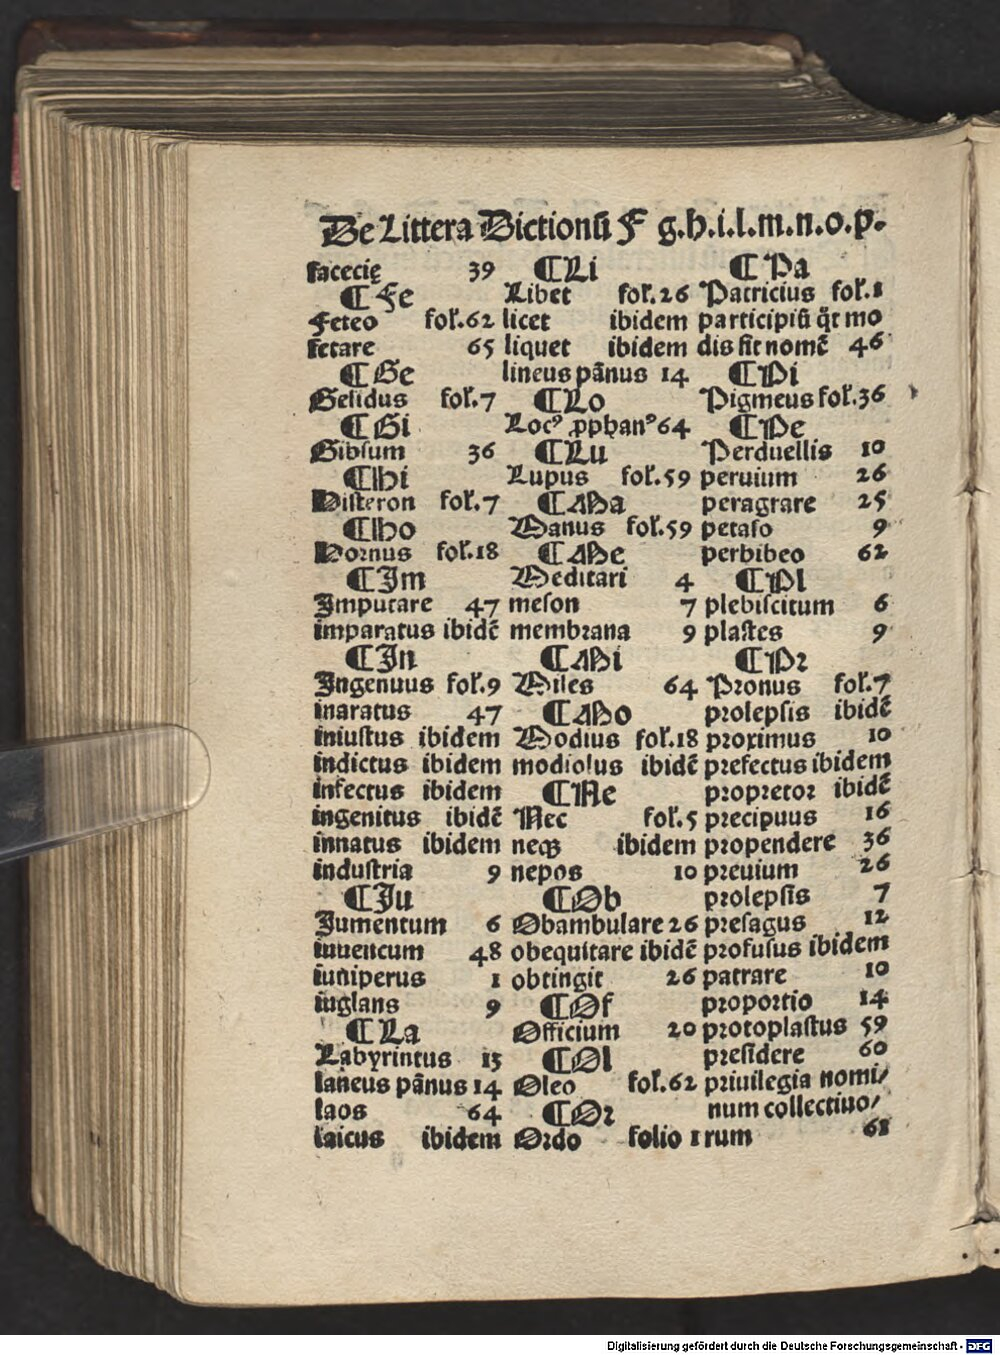 De Littera Dictionũ F g.h.i.l.m.n.o.p.
facecię 39
¶ Fe
Feteo fol.62
fetare 65
¶ Ge
Gelidus fol.7
¶ Gi
Gibsum 36
¶ Hi
Histeron fol.7
¶ Ho
Hornus fol.18
¶ Im
Imputare 47
imparatus ibidē
¶ In
Ingenuus fol.9
inaratus 47
iniustus ibidem
indictus ibidem
infectus ibidem
ingenitus ibidē
innatus ibidem
industria 9
¶ Iu
Iumentum 6
iuuencum 48
iuniperus 1
iuglans 9
¶ La
Labyrintus 13
laneus pãnus 14
laos 64
laicus ibidem
¶ Li
Libet fol.26
licet ibidem
liquet ibidem
lineus pãnus 14
¶ Lo
Locꝰ ꝓphanꝰ 64
¶ Lu
Lupus fol.59
¶ Ma
Manus fol.59
¶ Me
Meditari 4
meson 7
membrana 9
¶ Mi
Miles 64
¶ Mo
Modius fol.18
modiolus ibidē
¶ Ne
Nec fol.5
neqꝫ ibidem
nepos 10
¶ Ob
Obambulare 26
obequitare ibidē
obtingit 26
¶ Of
Officium 20
¶ Ol
Oleo fol.62
¶ Or
Ordo folio 1
¶ Pa
Patricius fol.1
participiũ q̃t mo
dis fit nomē 46
¶ Pi
Pigmeus fol.36
¶ Pe
Perduellis 10
peruium 26
peragrare 25
petaso 9
perbibeo 62
¶ Pl
plebiscitum 6
plastes 9
¶ Pr
Pronus fol.7
prolepsis ibidē
proximus 10
prefectus ibidem
propretor ibidē
precipuus 16
propendere 36
preuium 26
prolepsis 7
presagus 12
profusus ibidem
patrare 10
proportio 14
protoplastus 59
presidere 60
priuilegia nomi/
num collectiuo/
rum 61
Digitalisierung gefördert durch die Deutsche Forschungsgemeinschaft - DFG